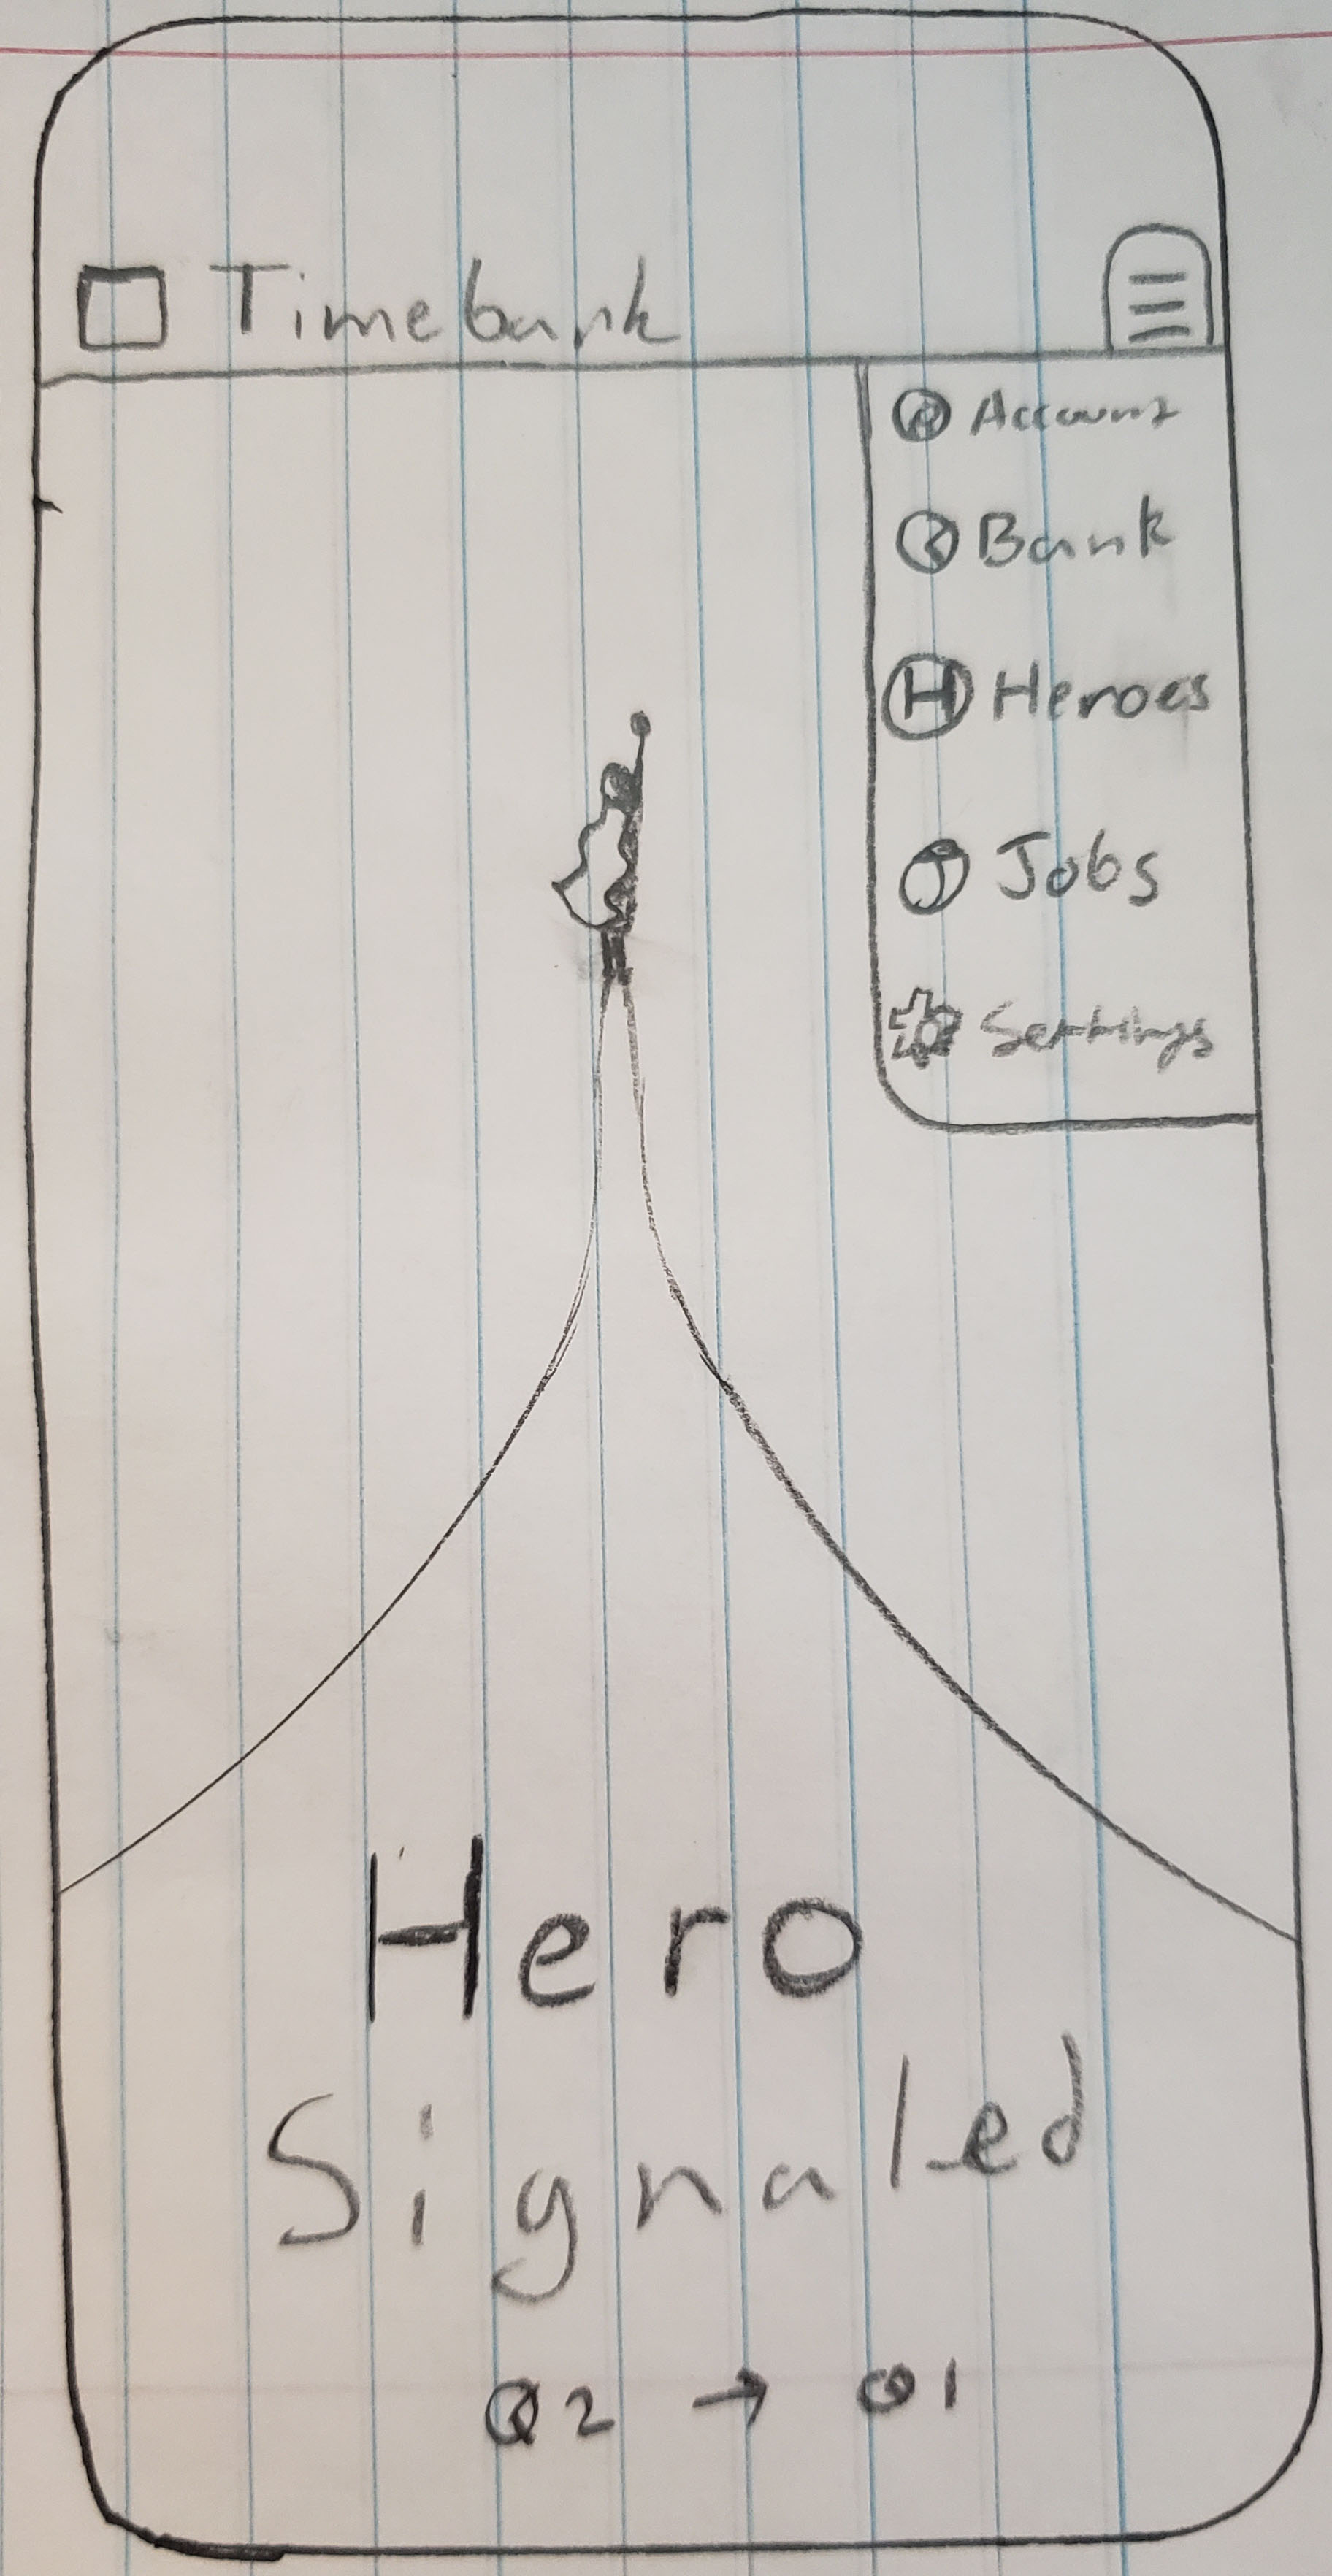 Timebank
Account
Bank
H Heroes
J Jobs
Settings
Hero
Signaled
Q2 → Q1